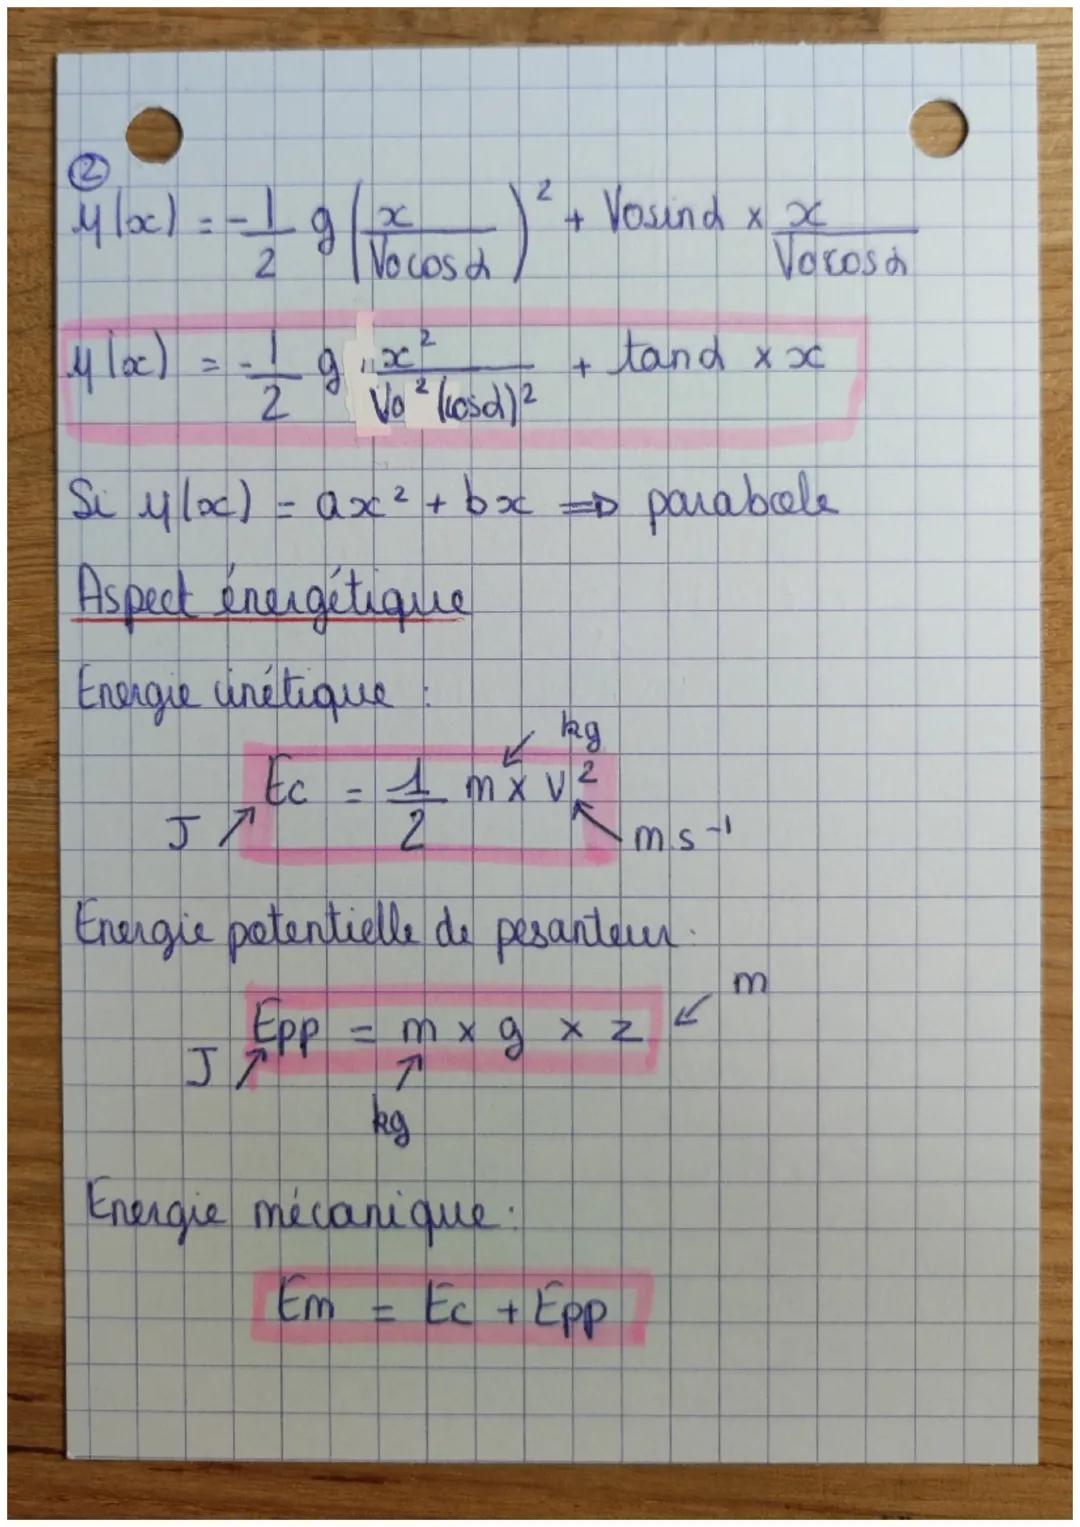 ②
y(x) = -1/2 g (x / V0cosα)² + V0sinα × x / V0cosα
y(x) = -1/2 g x² / V0²(cosα)² + tanα × x
Si y(x) = ax² + bx ⇒ parabole
Aspect énergétique
Energie cinétique :
kg
Ec = 1/2 m × v²
J
m.s⁻¹
Energie potentielle de pesanteur :
m
Epp = m × g × z
J
kg
Energie mécanique :
Em = Ec + Epp